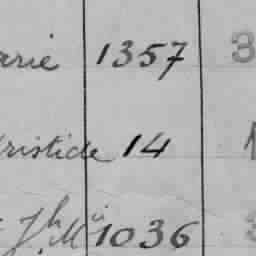 arie 1357 3
ristide 14
Jh Mu 1036